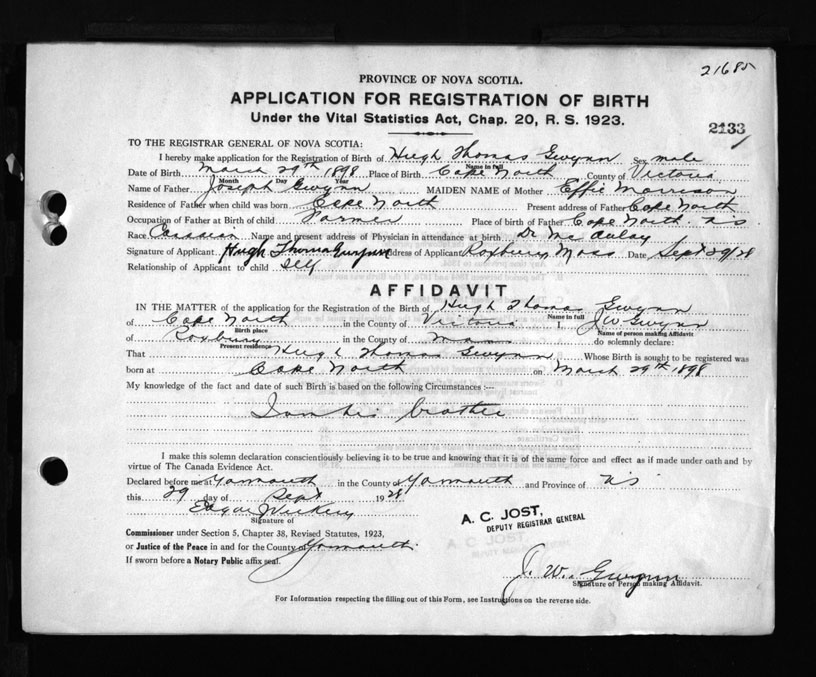 21685
PROVINCE OF NOVA SCOTIA.
APPLICATION FOR REGISTRATION OF BIRTH
Under the Vital Statistics Act, Chap. 20, R. S. 1923.
2133
TO THE REGISTRAR GENERAL OF NOVA SCOTIA:
I hereby make application for the Registration of Birth of Hugh Thomas Gwynn Sex male
Name in full
Date of Birth March 29th 1898 Place of Birth Cape North County of Victoria
Month Day Year
Name of Father Joseph Gwynn MAIDEN NAME of Mother Effie Morrison
Residence of Father when child was born Cape North Present address of Father Cape North
Occupation of Father at Birth of child Farmer Place of birth of Father Cape North N S
Race Canadian Name and present address of Physician in attendance at birth Dr McAulay
Signature of Applicant Hugh Thomas Gwynn Address of Applicant Roxbury Mass Date Sept 29/28
Relationship of Applicant to child Self
AFFIDAVIT
IN THE MATTER of the application for the Registration of the Birth of Hugh Thomas Gwynn
Name in full
of Cape North in the County of Victoria I, J W Gwynn
Birth place Name of person making Affidavit
of Roxbury in the County of Mass do solemnly declare:
Present residence
That Hugh Thomas Gwynn Whose Birth is sought to be registered was
born at Cape North on March 29th 1898
My knowledge of the fact and date of such Birth is based on the following Circumstances :—
I am his brother
I make this solemn declaration conscientiously believing it to be true and knowing that it is of the same force and effect as if made under oath and by
virtue of The Canada Evidence Act.
Declared before me at Yarmouth in the County of Yarmouth and Province of N S
this 29 day of Sept 1928
Edgar J Vickery
Signature of
A. C. JOST,
DEPUTY REGISTRAR GENERAL
Commissioner under Section 5, Chapter 38, Revised Statutes, 1923,
or Justice of the Peace in and for the County of Yarmouth.
If sworn before a Notary Public affix seal.
J. W. Gwynn
Signature of Person making Affidavit.
For Information respecting the filling out of this Form, see Instructions on the reverse side.